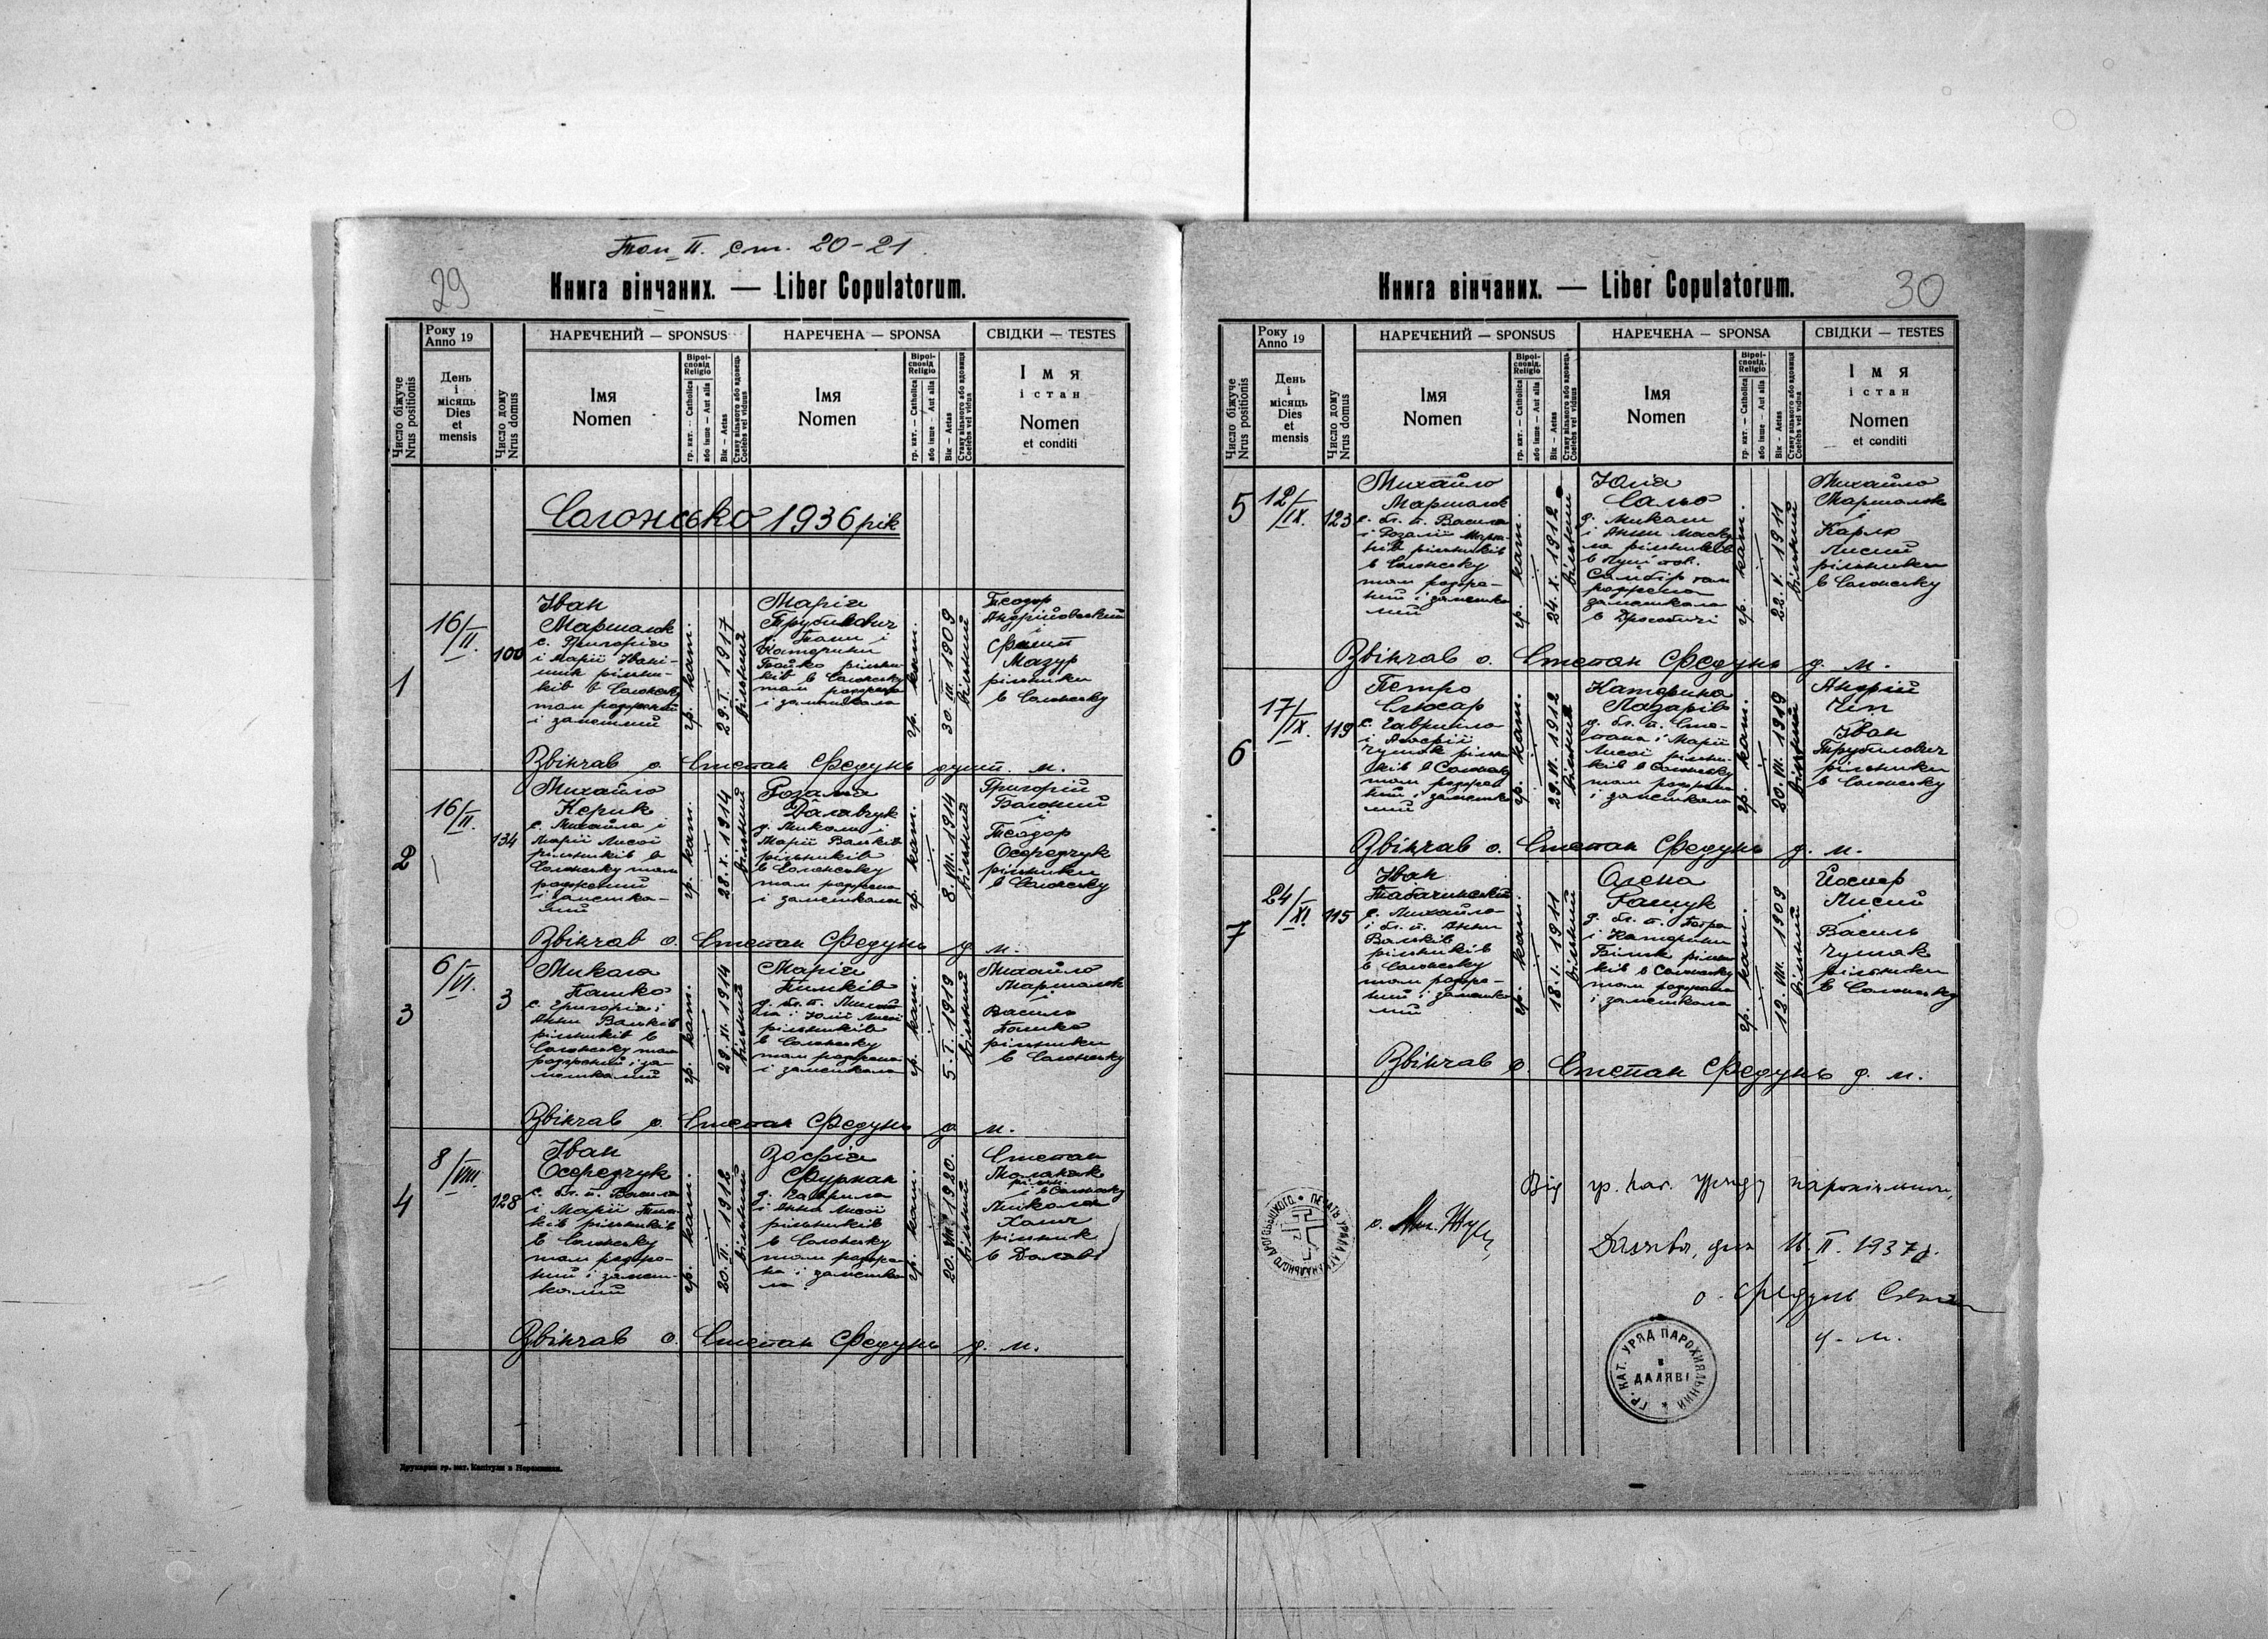 Том II. ст. 20-21.
29
Книга вінчаних. — Liber Copulatorum.
Число біжуче
Nrus positionis
Року
Anno 19
День
і
місяць
Dies
et
mensis
Число дому
Nrus domus
НАРЕЧЕНИЙ — SPONSUS
Імя
Nomen
Віроі-
сповід
Religio
гр. кат. — Catholica
або інше — Aut alia
Вік — Aetas
Стану вільного або вдовець
Coelebs vel viduus
НАРЕЧЕНА — SPONSA
Імя
Nomen
Віроі-
сповід
Religio
гр. кат. — Catholica
або інше — Aut alia
Вік — Aetas
Стану вільного або вдовиця
Coelebs vel vidua
СВІДКИ — TESTES
Імя
і стан
Nomen
et conditi
Солонсько 1936 рік
1
16/II.
100
Іван
Маршалок
с. Григорія
і Марії Івані-
шик рільни-
ків в Солонську
там роджений
і замешкалий
гр. кат.
29. I. 1917
вільний
Марія
Трубилович
д. і
Катерини
Бойко рільни-
ків в Солонську
там роджена
і замешкала
гр. кат.
30. III. 1909
вільний
Теодор
Андрійовський
і
Филип
Мазур
рільники
в Солонську
Звінчав о. Степан Федунь душп. м.
2
16/II.
134
Михайло
Керик
с. Михайла і
Марії Лисої
рільників в
Солонську там
роджений
і замешка-
лий
гр. кат.
28. X. 1914
вільний
Розалія
Далавчук
д. Миколи і
Марії Вальків
рільників
в Солонську
там роджена
і замешкала
гр. кат.
8. VIII. 1914
вільний
Григорій
Багоний
і
Теодор
Осередчук
рільники
в Солонську
Звінчав о. Степан Федунь д. м.
3
6/VI.
3
Микола
Пашко
с. Григорія і
Анни Вальків
рільників в
Солонську там
роджений і за-
мешкалий
гр. кат.
29. XI. 1914
вільний
Марія
Тимків
д. бл. п. Михай-
ла і Юлії Лисої
рільників
в Солонську
там роджена
і замешкала
гр. кат.
5. I. 1919
вільний
Михайло
Маршалок
і
Василь
Пашко
рільники
в Солонську
Звінчав о. Степан Федунь д. м.
4
8/VIII.
128
Іван
Осередчук
с. бл. п. Василя
і Марії Тим-
ків рільників
в Солонську
там родже-
ний і замеш-
калий
гр. кат.
20. II. 1912
вільний
Зофія
Фурман
д. Гаврила
і Анни Лисої
рільників
в Солонську
там родже-
на і замешка-
ла
гр. кат.
20. VIII. 1920.
вільний
Степан
рільн.
і в Солонську
Микола
Халич
рільник
в Даляві
Звінчав о. Степан Федунь д. м.
Друкарня гр. кат. Капітули в Перемишли.
30
Книга вінчаних. — Liber Copulatorum.
Число біжуче
Nrus positionis
Року
Anno 19
День
і
місяць
Dies
et
mensis
Число дому
Nrus domus
НАРЕЧЕНИЙ — SPONSUS
Імя
Nomen
Віроі-
сповід.
Religio
гр. кат. — Catholica
або інше — Aut alia
Вік — Aetas
Стану вільного або вдовець
Coelebs vel viduus
НАРЕЧЕНА — SPONSA
Імя
Nomen
Віроі-
сповід.
Religio
гр. кат. — Catholica
або інше — Aut alia
Вік — Aetas
Стану вільного або вдовиця
Coelebs vel vidua
СВІДКИ — TESTES
Імя
і стан
Nomen
et conditi
5
12/IX.
123
Михайло
Маршалок
с. бл. п. Василя
і Розалії
рільників
в Солонську
там родже-
ний і замешка-
лий
гр. кат.
24. X. 1912
вільний
Юлія
Сальо
д. Миколи
і Анни
рільників
в
Самбір там
роджена
замешкала
в Дрогобичі
гр. кат.
22. V. 1911
вільний
Михайло
Маршалок
і
Карло
Лисий
рільники
в Солонську
Звінчав о. Степан Федунь д. м.
6
17/IX.
119
Петро
Слюсар
с. Гавриїла
і Зофії
Чушак рільни-
ків в Солонську
там родже-
ний і замешка-
лий
гр. кат.
29. VI. 1912
вільний
Катерина
Лазарів
д. бл. п. Сте-
пана і Марії
Лисої рільни-
ків в Солонську
там роджена
і замешкала
гр. кат.
20. VII. 1919
вільний
Андрій
Чіп
і
Іван
Трубилович
рільники
в Солонську
Звінчав о. Степан Федунь д. м.
7
24/XI.
115
Іван
Табачинський
с. Михайла
і бл. п. Анни
Вальків
рільників
в Солонську
там родже-
ний і замешка-
лий
гр. кат.
18. I. 1911
вільний
Олена
Гащук
д. бл. п. Петра
і Катерини
Білик рільни-
ків в Солонську
там роджена
і замешкала
гр. кат.
12. VIII. 1909
вільний
Йосиф
Лисий
і
Василь
Чушак
рільники
в Солонську
Звінчав о. Степан Федунь д. м.
Від гр. кат. Уряду парохіяльного,
Далява, дня 16. II. 1937 р.
о. Федунь Степан
д. м.
ГР. КАТ. УРЯД ПАРОХІЯЛЬНИЙ
в
ДАЛЯВІ